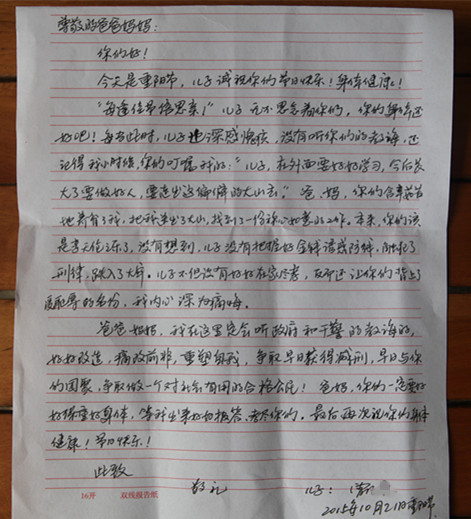 尊敬的爸爸妈妈:
你们好!
今天是重阳节,儿子诚祝你们节日快乐!身体健康!
"每逢佳节倍思亲!"儿子无不思念着你们,你们身体还
好吧!每当此时,儿子也深感愧疚,没有听你们的教诲,还
记得我小时候,你们叮嘱我的:"儿子,在外面要好好学习,今后长
大了要做好人,要走出这偏僻的大山去。"爸,妈,你们含辛茹苦
地养育了我,把我送出了大山,找到了一份称心如意的工作。本来,你们该
是享天伦
了,没有想到,儿子没有把握好金钱诱惑防线,触犯了
刑律,跌入了大牢。儿子不但没有好好在家尽孝,反而还让你们背上
的身份,我内心深为痛悔。
爸爸妈妈,我在这里定会听政府和干警的教诲的,
好好改造,痛改前非,重塑自我,争取早日获得减刑,早日与你
们团聚,争取做一个对社会有用的合格公民!爸妈,你们一定要好
好保重好身体,等我出来好好报答、孝敬你们。最后再次祝你们身体
健康!节日快乐!
此致
敬礼
儿子:
2015年10月21日重阳节
16开 双线报告纸